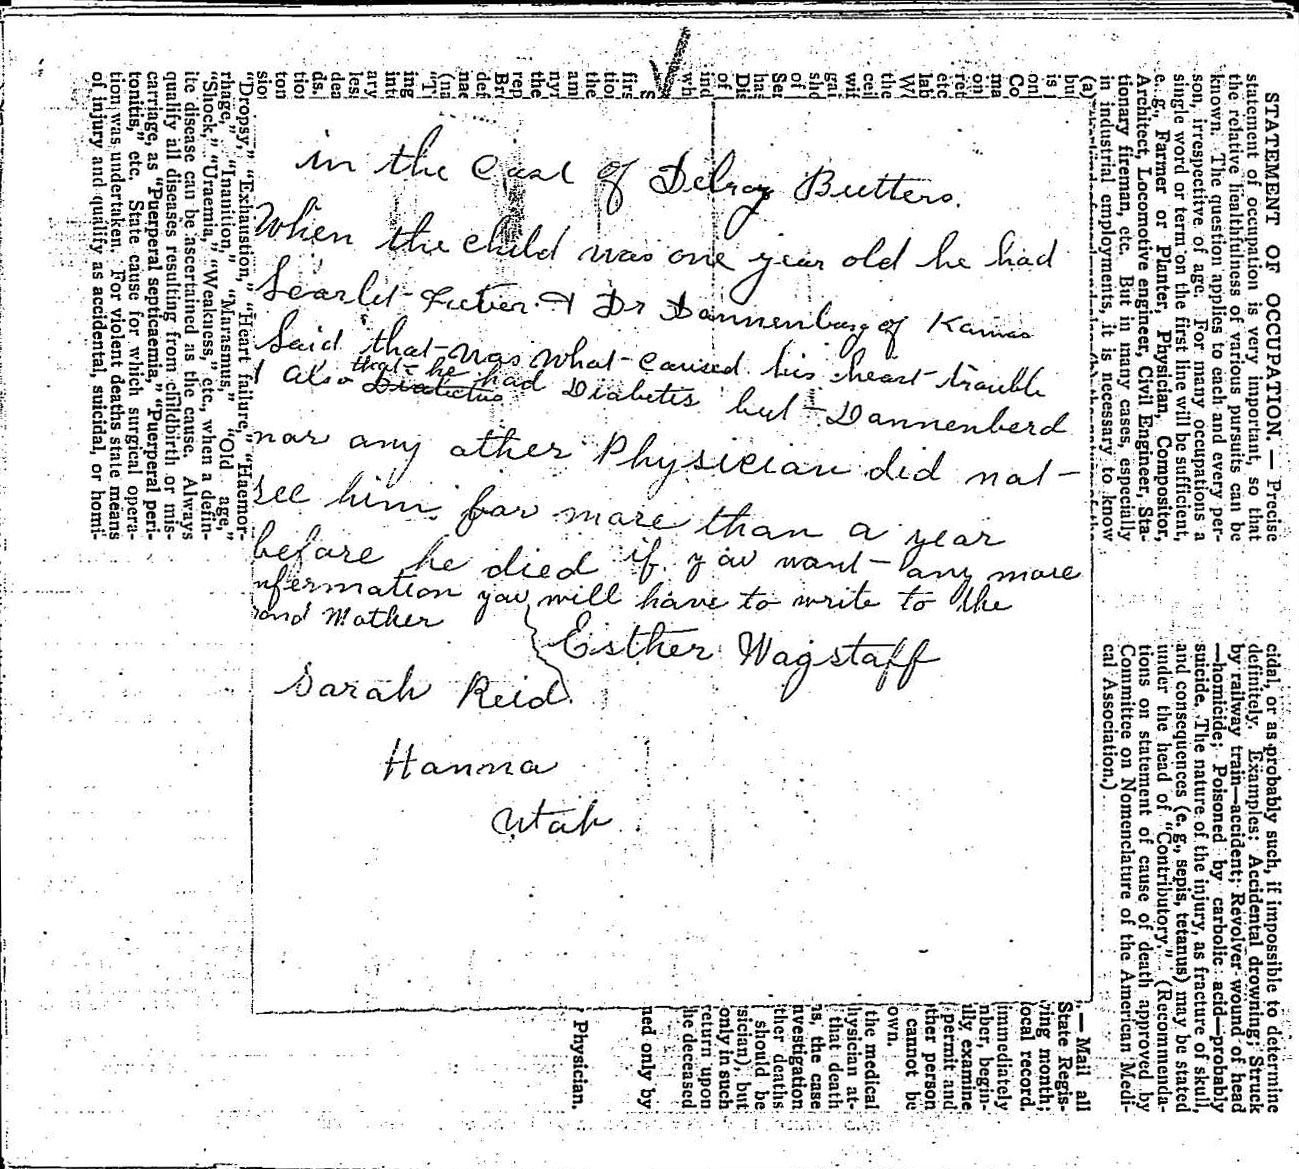 in the case of Delroy Butters.
When the child was one year old he had
Scarlet-Fever & Dr Dannenburg of Kamas
Said that was what caused his heart trouble
& also that he had Diabetes but Dannenberd
nor any other Physician did not
see him for more than a year
before he died if you want any more
nformation you will have to write to the
rand Mother
Esther Wagstaff
Sarah Reid
Hanna
Utah
STATEMENT OF OCCUPATION. — Precise
statement of occupation is very important, so that
the relative healthfulness of various pursuits can be
known. The question applies to each and every per-
son, irrespective of age. For many occupations a
single word or term on the first line will be sufficient,
e. g., Farmer or Planter, Physician, Compositor,
Architect, Locomotive engineer, Civil Engineer, Sta-
tionary fireman, etc. But in many cases, especially
in industrial employments, it is necessary to know
(a)
"Dropsy," "Exhaustion," "Heart failure," "Haemor-
rhage," "Inanition," "Marasmus," "Old age,"
"Shock," "Uraemia," "Weakness," etc., when a defin-
ite disease can be ascertained as the cause. Always
qualify all diseases resulting from childbirth or mis-
carriage, as "Puerperal septicaemia," "Puerperal peri-
tonitis," etc. State cause for which surgical opera-
tion was undertaken. For violent deaths state means
of injury and qualify as accidental, suicidal, or homi-
cidal, or as probably such, if impossible to determine
definitely. Examples: Accidental drowning; Struck
by railway train—accident; Revolver wound of head
—homicide; Poisoned by carbolic acid—probably
suicide. The nature of the injury, as fracture of skull,
and consequences (e. g., sepsis, tetanus) may be stated
under the head of "Contributory." (Recommenda-
tions on statement of cause of death approved by
Committee on Nomenclature of the American Medi-
cal Association.)
— Mail all
State Regis-
ving month;
local record.
immediately
nber, begin-
lly examine
permit and
ther person
cannot be
own.
the medical
hysician at-
that death
as, the case
nvestigation
ther deaths
should be
sician), but
only in such
return upon
he deceased
ned only by
Physician.